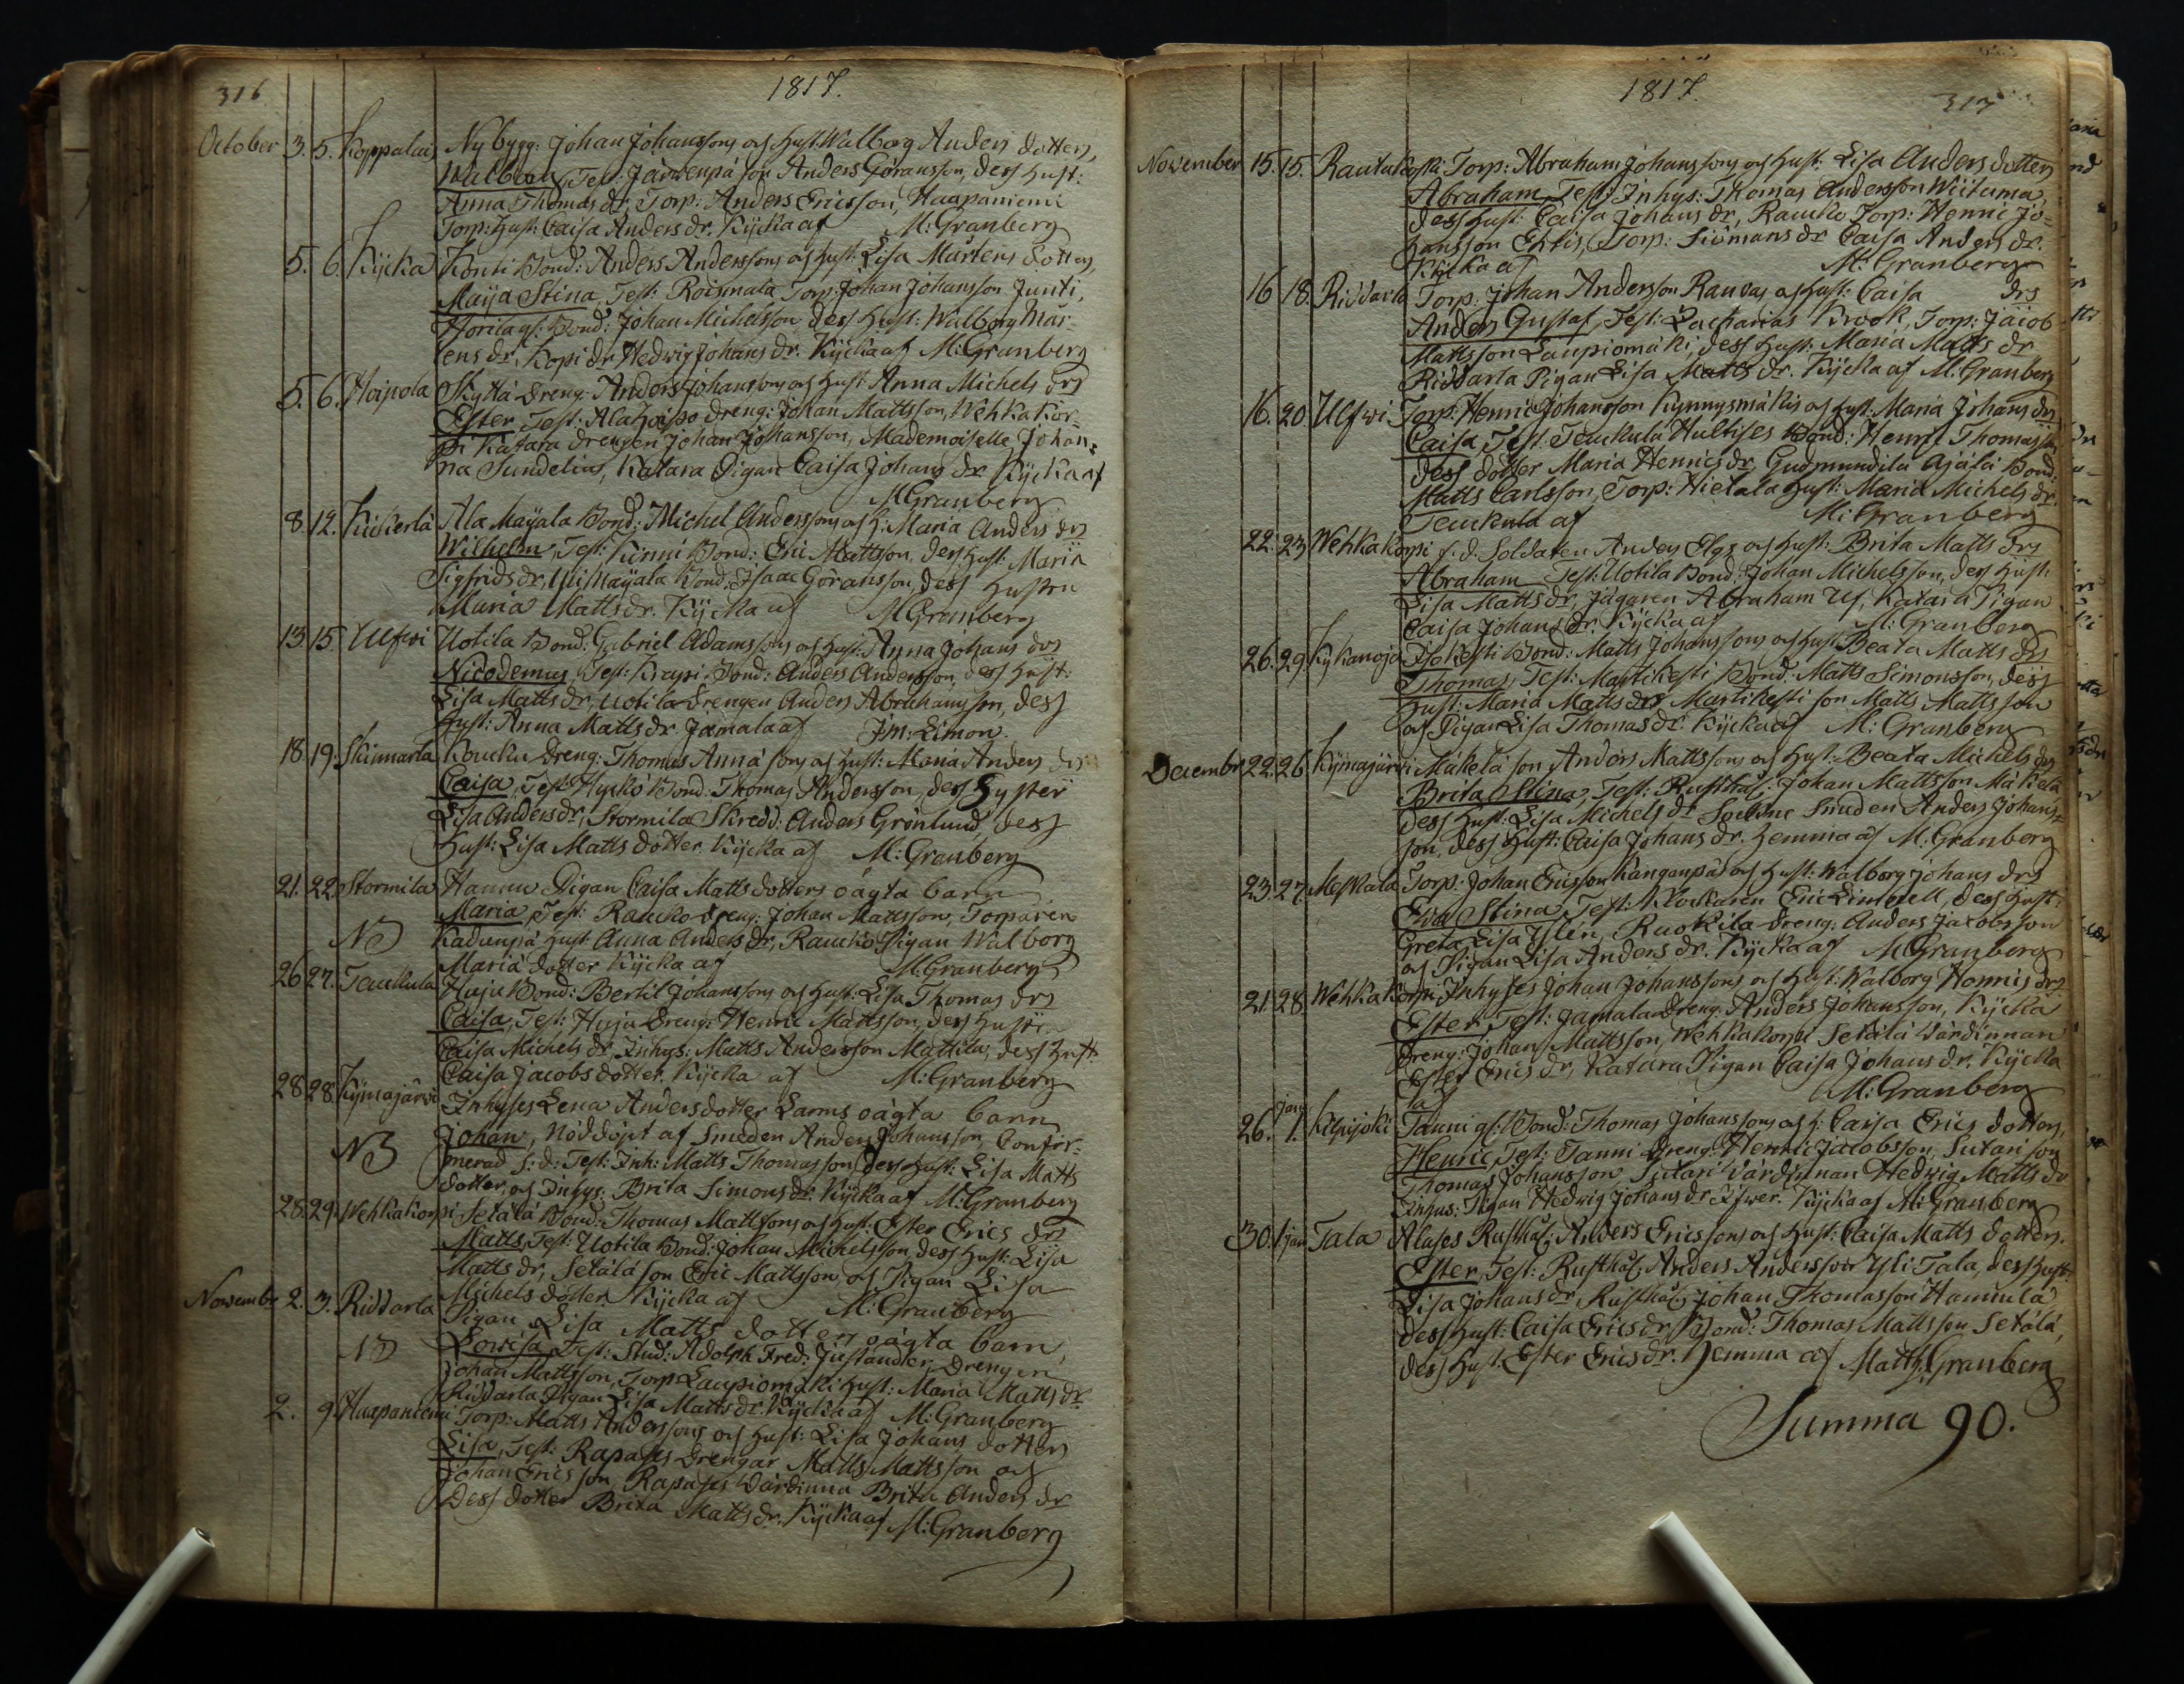 316
1817.
October 3. 5. Koppalais Nybygg: Johan Johanssons och Hust. Walborg Anders dotters,
Walborg, Test: Järwenpä son Anders Göransson, dess Hust:
Anna Thomas dr, Torp: Anders Ericsson, Haapaniemi
Torp: Hust: Caisa Anders dr. Kijcka af M: Granberg
5. 6. Kijcka Konni Bond: Anders Anderssons och Hust: Lisa Mårtens dotters,
Maija Stina, Test: Roismala Torp: Johan Johansson Junti,
Horila gl: Bond: Johan Michelsson, dess Hust: Walborg Mår-
tens dr, Kopi dr Hedwig Johans dr. Kijcka af M: Granberg
5. 6. Hoipola Skyttä dreng: Anders Johanssons och Hust. Anna Michels drs
Ester, Test: Ala Hoispo dreng: Johan Mattsson, Wehkakor-
pi Katara drengen Johan Johansson, Mademoiselle Johan-
na Sundelius, Katara Pigan Caisa Johans dr Kijcka af
M: Granberg
8. 12. Kickerlä Ala Mayala Bond: Michel Anderssons och H: Maria Anders drs
Wilhelm, Test: Kinni Bond: Eric Mattsson, dess Hust: Maria
Sigfrids dr, Uli Mayala Bond: Isaac Göransson, dess Hustru
Maria Matts dr. Kijcka af M: Granberg
13. 15. Ulfwi Uotila Bond: Gabriel Adamssons och Hust: Anna Johans drs
Nicodemus, Test: Krapi Bond: Anders Andersson, dess Hust:
Lisa Matts dr, Uotila drengen Anders Abrahamsson, dess
Hust: Anna Matts dr. Jamala af J: M: Limon.
18. 19. Skinnarla Koucku dreng: Thomas Annäsons och Hust: Maria Anders drs
Caisa, Test: Hyckö Bond: Thomas Andersson, dess Syster
Lisa Anders dr, Stormila Skredd: Anders Grönlund, dess
Hust: Lisa Matts dotter. Kijcka af M: Granberg
21. 22. Stormila Hannu Pigan Caisa Matts dotters oägta barn
Maria, Test: Raucko dreng: Johan Mattsson, Torparen
NB Kadunpä Hust: Anna Anders dr, Raucko Pigan Walborg
Maria dotter Kijcka af M: Granberg
26. 27. Teuckula Huja Bond: Bertil Johanssons och Hust: Lisa Thomas drs
Caisa, Test: Huja dreng: Henric Mattsson, dess Hustr.
Caisa Michels dr, Inhys: Matts Andersson Mattila, dess Hust
Caisa Jacobs dotter. Kijcka af M: Granberg
28. 28. Kijmajärwi Inhyses Lena Anders dotter Larms oägta barn
Johan, Nöddöpt af Smeden Anders Johansson, Confir-
NB merad s: d: Test: Inh: Matts Thomasson, dess Hust: Lisa Matts
dotter, och Inhys: Brita Simons dr. Kijcka af M: Granberg
28. 29. Wehkakorpi Setälä Bond: Thomas Mattssons och Hust: Ester Erics drs
Matts, Test: Uotila Bond: Johan Michelsson, dess Hust: Lisa
Matts dr, Setälä son Eric Mattsson, och Pigan Lisa
Michels dotter. Kijcka af M: Granberg
November 2. 3. Riddarla Pigan Lisa Matts dotters oägta barn,
NB Lowisa, Test: Stud: Adolph Fred: Justander, Drengen
Johan Mattsson, Torp Laupiomäki Hust: Maria Matts dr
Riddarla Pigan Lisa Matts dr. Kijcka af M: Granberg
2. 9. Haapaniemi Torp: Matts Anderssons och Hust: Lisa Johans dotters
Lisa, Test: Rapases Drengar Matts Mattsson och
Johan Ericsson, Rapases Värdinna Brita Anders dr
Dess dotter Brita Matts dr. Kijcka af M: Granberg
1817.
317
November 15. 15. Rautakoski Torp: Abraham Johanssons och Hust: Lisa Anders dotters
Abraham, Test: Inhys: Thomas Andersson Wiituma,
dess Hust: Caisa Johans dr, Raucko Torp: Henric Jo-
hansson Ektis, Torp: Siömans dr Caisa Anders dr.
Kijcka af M: Granberg
16 18. Riddarla Torp: Johan Andersson Rauvas och Hust: Caisa drs
Anders Gustaf, Test: Zacharias Krook, Torp: Jacob
Mattsson Laupiomäki, dess Hust: Maria Matts dr
Riddarla Pigan Lisa Matts dr. Kijcka af M: Granberg
16. 20. Ulfwi Torp: Henric Johansson Kynnysmäkis och Hust: Maria Johans drs
Caisa, Test: Teuckula Hultises Bond: Henric Thomasson,
dess dotter Maria Henrics dr, Gudmundila Ajälä Bond:
Matts Carlsson, Torp: Hietala Hust: Maria Michels dr.
Teuckula af M: Granberg
22. 23 Wehkakorpi s. d. Soldaten Anders Elgs och Hust: Brita Matts drs
Abraham Test: Uotila Bond: Johan Michelsson, dess Hust:
Lisa Matts dr, Jägaren Abraham Ulf, Katara Pigan
Caisa Johans dr. Kijcka af M: Granberg
26. 29. Kykanoja Isokesti Bond: Matts Johanssons och Hust: Beata Matts drs
Thomas, Test: Martikesti Bond: Matts Simonsson, dess
Hust: Maria Matts dr Martikesti son Matts Mattsson
och Pigan Lisa Thomas dr. Kijcka af M: Granberg
December 22. 26. Kijmajärwi Mäkelä son Anders Mattssons och Hust: Beata Michels drs
Brita Stina, Test: Rusthål: Johan Mattsson Mäkelä
dess Hust: Lisa Michels dr Sockne Smeden Anders Johans-
son, dess Hust: Caisa Johans dr. Hemma af M: Granberg
23. 27. Meskala Torp: Johan Ericsson Känganpäs och Hust: Walborg Johans drs
Ewa Stina, Test: Klockaren Eric Limnell, dess Hust:
Greta Lisa Islén, Ruokila dreng: Anders Jacobsson
och Pigan Lisa Anders dr. Kijcka af M: Granberg
21. 28. Wehkakorpi Inhyses Johan Johanssons och Hust: Walborg Henrics drs
Ester, Test: Jamala dreng: Anders Johansson, Kijcka
dreng: Johan Mattsson, Wehkakorpi Setälä Värdinnan
Ester Erics dr, Katara Pigan Caisa Johans dr. Kijcka
af M: Granberg
Janr
26. 1. Kilpijoki Tanni gl: Bond: Thomas Johanssons och H: Caisa Erics dotters,
Henric, Test: Tanni Dreng: Henric Jacobsson, Sutari son
Thomas Johansson, Sutari Värdinnan Hedwig Matts dr
Pigan Hedwig Johans dr Kijcka af M: Granberg
30. 1 Janr Tala Alases Rusthål: Anders Ericssons och Hust: Caisa Matts dotters.
Ester, Test: Rusthål: Anders Andersson Yli Tala, dess Hust:
Lisa Johans dr, Rusthål: Johan Thomasson Hannula
dess Hust: Caisa Erics dr, Bond: Thomas Mattsson Setälä,
dess Hust: Ester Erics dr. Hemma af Matths Granberg
Summa 90.